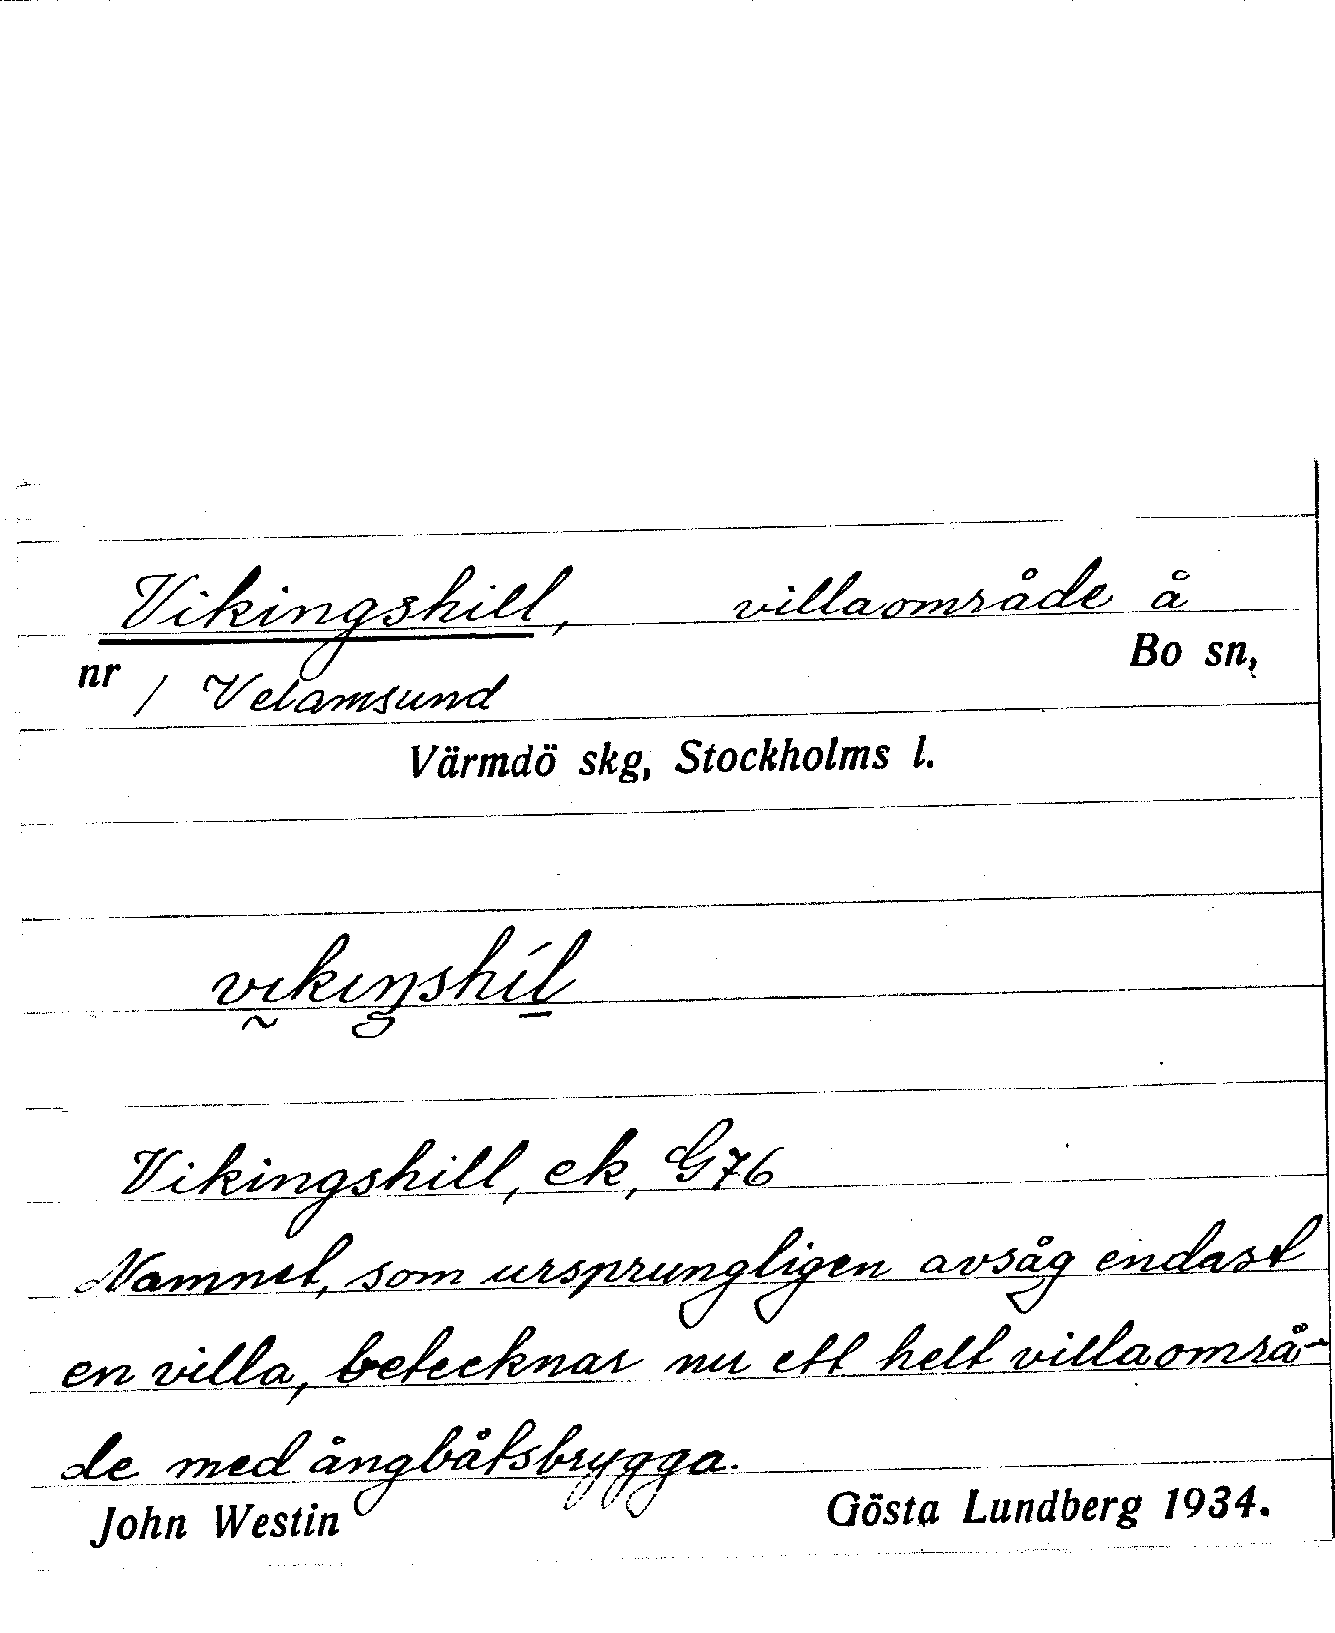 Vikingshill, villaområde å
nr / Velamsund Bo sn,
Värmdö skg, Stockholms l.
vıkıŋshíl
Vikingshill, ek, G76
Namnet, som ursprungligen avsåg endast
en villa, betecknar nu ett helt villaområ-
de med ångbåtsbrygga.
John Westin Gösta Lundberg 1934.